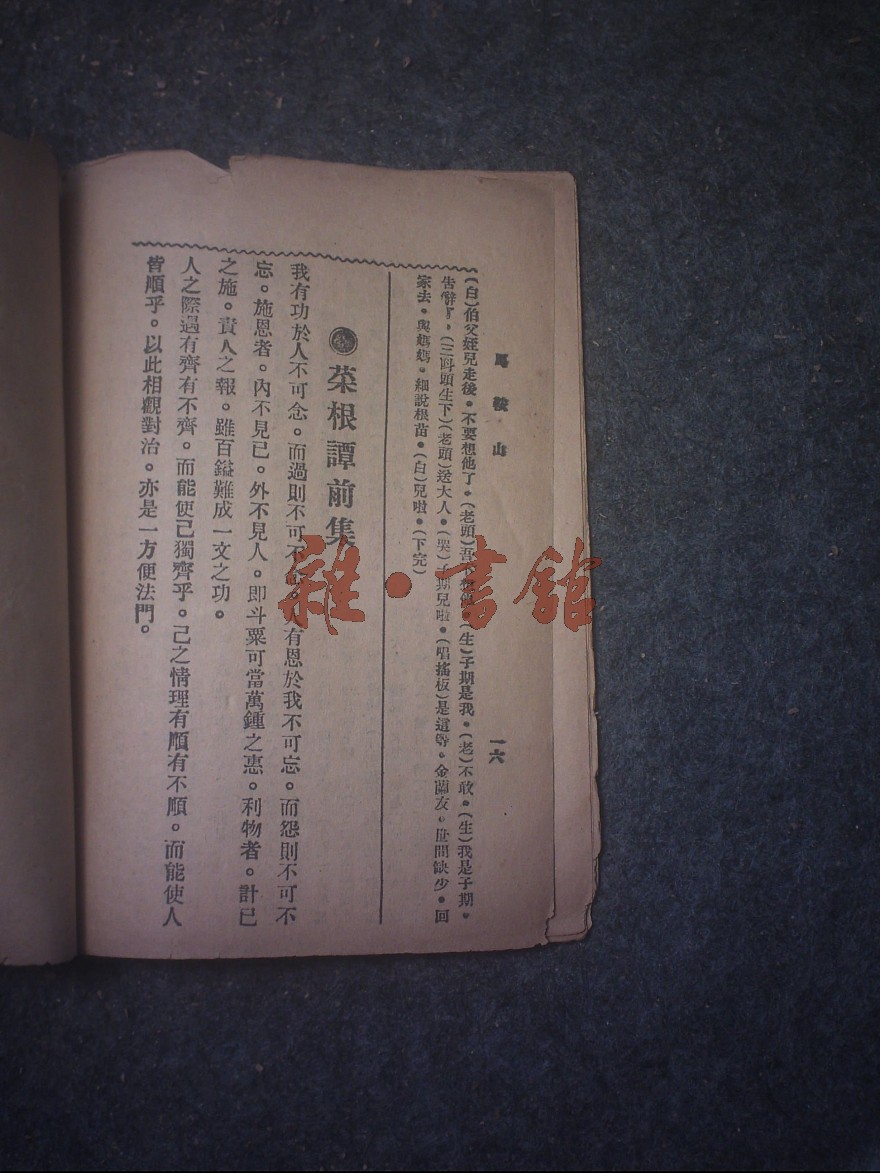 馬鞍山
一六
(白)伯父姪兒走後。不要想他了。(老頭)吾不想他。(生)子期是我。(老)不敢。(生)我是子期。
告辭了。(三叩頭生下)(老頭)送大人。(哭)子期兒啦。(唱搖板)是這等。金蘭友。世間缺少。回
家去。與媽媽。細說根苗。(白)兒啦。(下完)
菜根譚前集
我有功於人不可念。而過則不可不念。人有恩於我不可忘。而怨則不可不
忘。施恩者。內不見己。外不見人。即斗粟可當萬鍾之惠。利物者。計己
之施。責人之報。雖百鎰難成一文之功。
人之際遇有齊有不齊。而能使己獨齊乎。己之情理有順有不順。而能使人
皆順乎。以此相觀對治。亦是一方便法門。
雜·書館